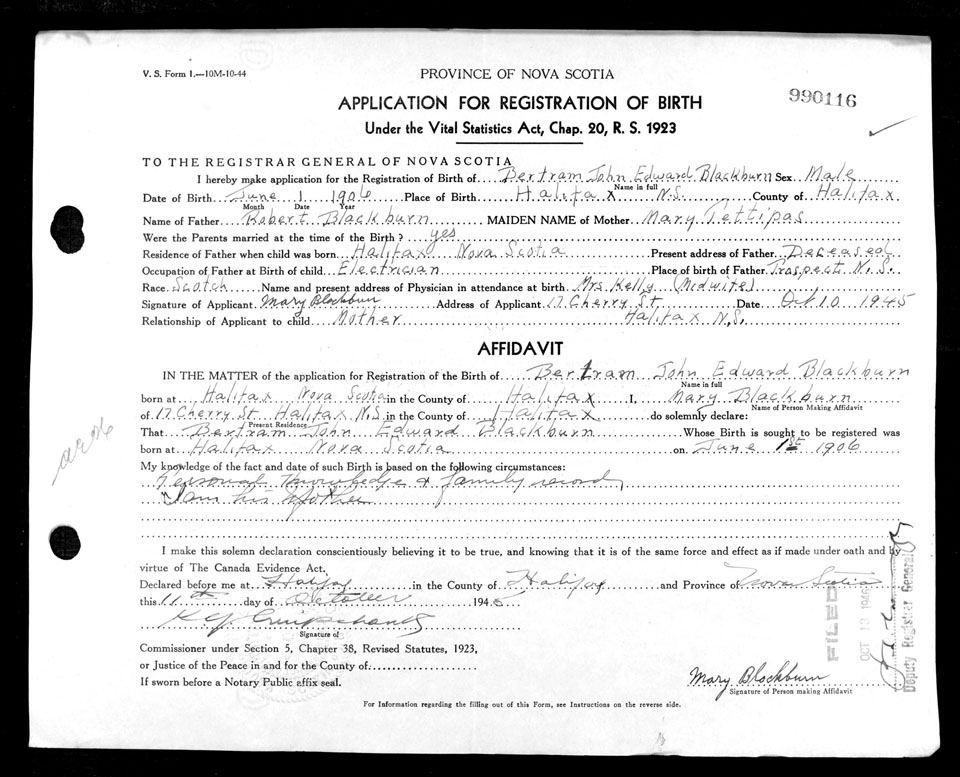 V. S. Form 1.—10M-10-44
PROVINCE OF NOVA SCOTIA
990116
APPLICATION FOR REGISTRATION OF BIRTH
Under the Vital Statistics Act, Chap. 20, R. S. 1923
TO THE REGISTRAR GENERAL OF NOVA SCOTIA
I hereby make application for the Registration of Birth of Bertram John Edward Blackburn Sex Male
Name in full
Date of Birth June 1 1906 Place of Birth Halifax N.S. County of Halifax
Month Date Year
Name of Father Robert Blackburn MAIDEN NAME of Mother Mary Tettipas
Were the Parents married at the time of the Birth? yes
Residence of Father when child was born Halifax Nova Scotia Present address of Father Deceased
Occupation of Father at Birth of child Electrician Place of birth of Father Prospect N.S.
Race Scotch Name and present address of Physician in attendance at birth Mrs Kelly (Midwife)
Signature of Applicant Mary Blackburn Address of Applicant 17 Cherry St Date Oct 10 1945
Relationship of Applicant to child Mother Halifax N.S.
AFFIDAVIT
IN THE MATTER of the application for Registration of the Birth of Bertram John Edward Blackburn
Name in full
born at Halifax Nova Scotia in the County of Halifax I, Mary Blackburn
Name of Person Making Affidavit
of 17 Cherry St Halifax N.S. in the County of Halifax do solemnly declare:
Present Residence
That Bertram John Edward Blackburn Whose Birth is sought to be registered was
born at Halifax Nova Scotia on June 1st 1906
My knowledge of the fact and date of such Birth is based on the following circumstances:
Personal Knowledge & family record,
I am his Mother
I make this solemn declaration conscientiously believing it to be true, and knowing that it is of the same force and effect as if made under oath and by
virtue of The Canada Evidence Act.
Declared before me at Halifax in the County of Halifax and Province of Nova Scotia
this 11th day of October 194
Signature of
Commissioner under Section 5, Chapter 38, Revised Statutes, 1923,
or Justice of the Peace in and for the County of:
If sworn before a Notary Public affix seal.
Mary Blackburn
Signature of Person making Affidavit
For Information regarding the filling out of this Form, see Instructions on the reverse side.
FILED
OCT 13 1946
Deputy Registrar General